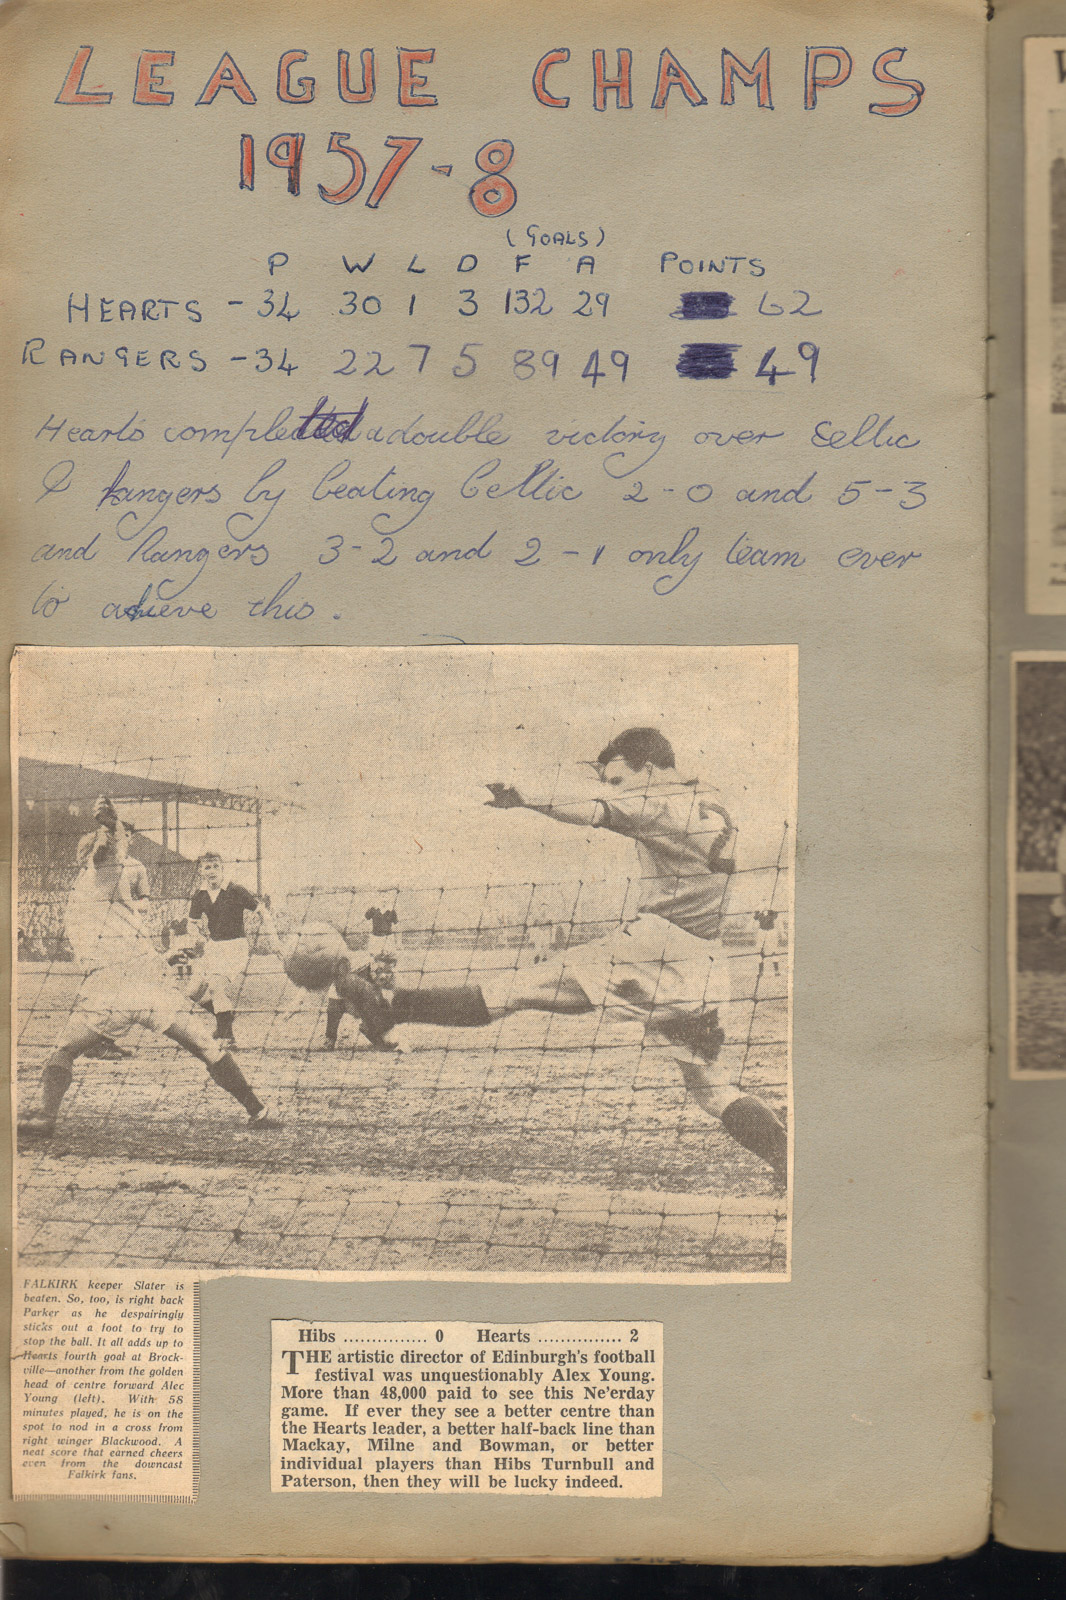 LEAGUE CHAMPS
1957-8
(GOALS)
P W L D F A POINTS
HEARTS - 34 30 1 3 132 29 62
RANGERS - 34 22 7 5 89 49 49
Hearts completed a double victory over Celtic
& Rangers by beating Celtic 2-0 and 5-3
and Rangers 3-2 and 2-1 only team ever
to achieve this.
FALKIRK keeper Slater is
beaten. So, too, is right back
Parker as he despairingly
sticks out a foot to try to
stop the ball. It all adds up to
Hearts fourth goal at Brock-
ville—another from the golden
head of centre forward Alec
Young (left). With 58
minutes played, he is on the
spot to nod in a cross from
right winger Blackwood. A
neat score that earned cheers
even from the downcast
Falkirk fans.
Hibs ............... 0 Hearts ............... 2
THE artistic director of Edinburgh's football
festival was unquestionably Alex Young.
More than 48,000 paid to see this Ne'erday
game. If ever they see a better centre than
the Hearts leader, a better half-back line than
Mackay, Milne and Bowman, or better
individual players than Hibs Turnbull and
Paterson, then they will be lucky indeed.